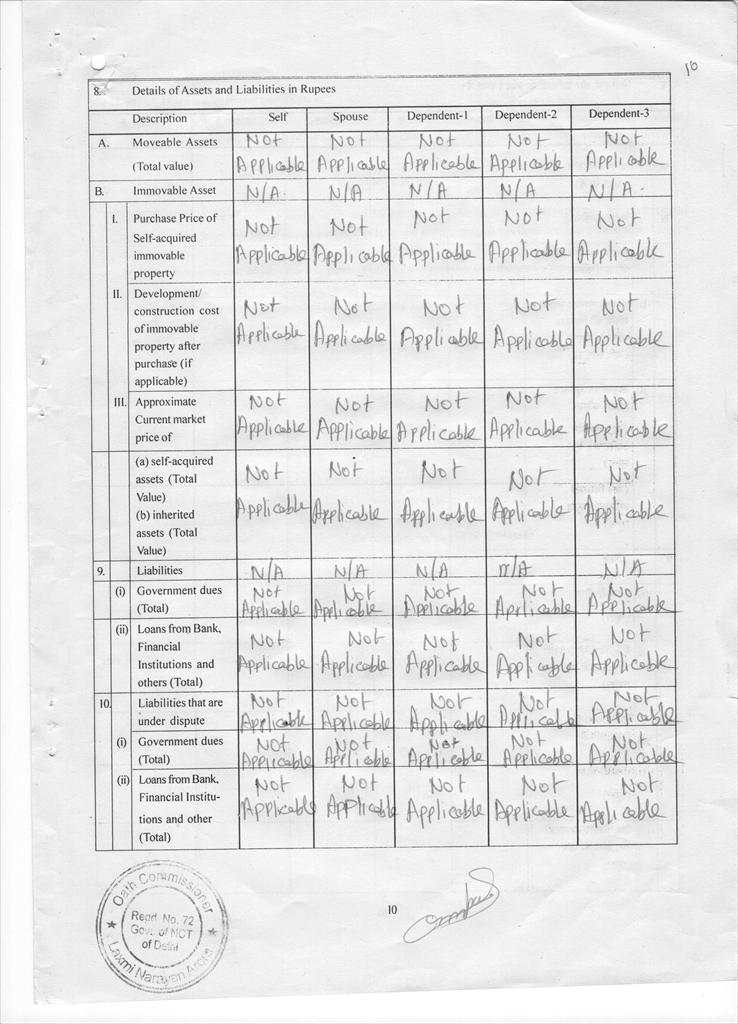 10
8. Details of Assets and Liabilities in Rupees
Description Self Spouse Dependent-1 Dependent-2 Dependent-3
A. Moveable Assets Not Not Not Not Not
(Total value) Applicable Applicable Applicable Applicable Applicable
B. Immovable Asset N/A. N/A N/A N/A N/A.
I. Purchase Price of Not Not Not Not Not
Self-acquired
immovable Applicable Applicable Applicable Applicable Applicable
property
II. Development/ Not Not Not Not Not
construction cost
of immovable Applicable Applicable Applicable Applicable Applicable
property after
purchase (if
applicable)
III. Approximate Not Not Not Not Not
Current market Applicable Applicable Applicable Applicable Applicable
price of
(a) self-acquired Not Not Not Not Not
assets (Total
Value)
(b) inherited Applicable Applicable Applicable Applicable Applicable
assets (Total
Value)
9. Liabilities N/A N/A N/A N/A N/A
(i) Government dues Not Not Not Not Not
(Total) Applicable Applicable Applicable Applicable Applicable
(ii) Loans from Bank, Not Not Not Not Not
Financial
Institutions and Applicable Applicable Applicable Applicable Applicable
others (Total)
10. Liabilities that are Not Not Not Not Not
under dispute Applicable Applicable Applicable Applicable Applicable
(i) Government dues Not Not Not Not Not
(Total) Applicable Applicable Applicable Applicable Applicable
(ii) Loans from Bank, Not Not Not Not Not
Financial Institu-
tions and other Applicable Applicable Applicable Applicable Applicable
(Total)
Oath Commissioner
Regd. No. 72
Govt. of NCT
of Delhi
Laxmi Narayan Arora
10